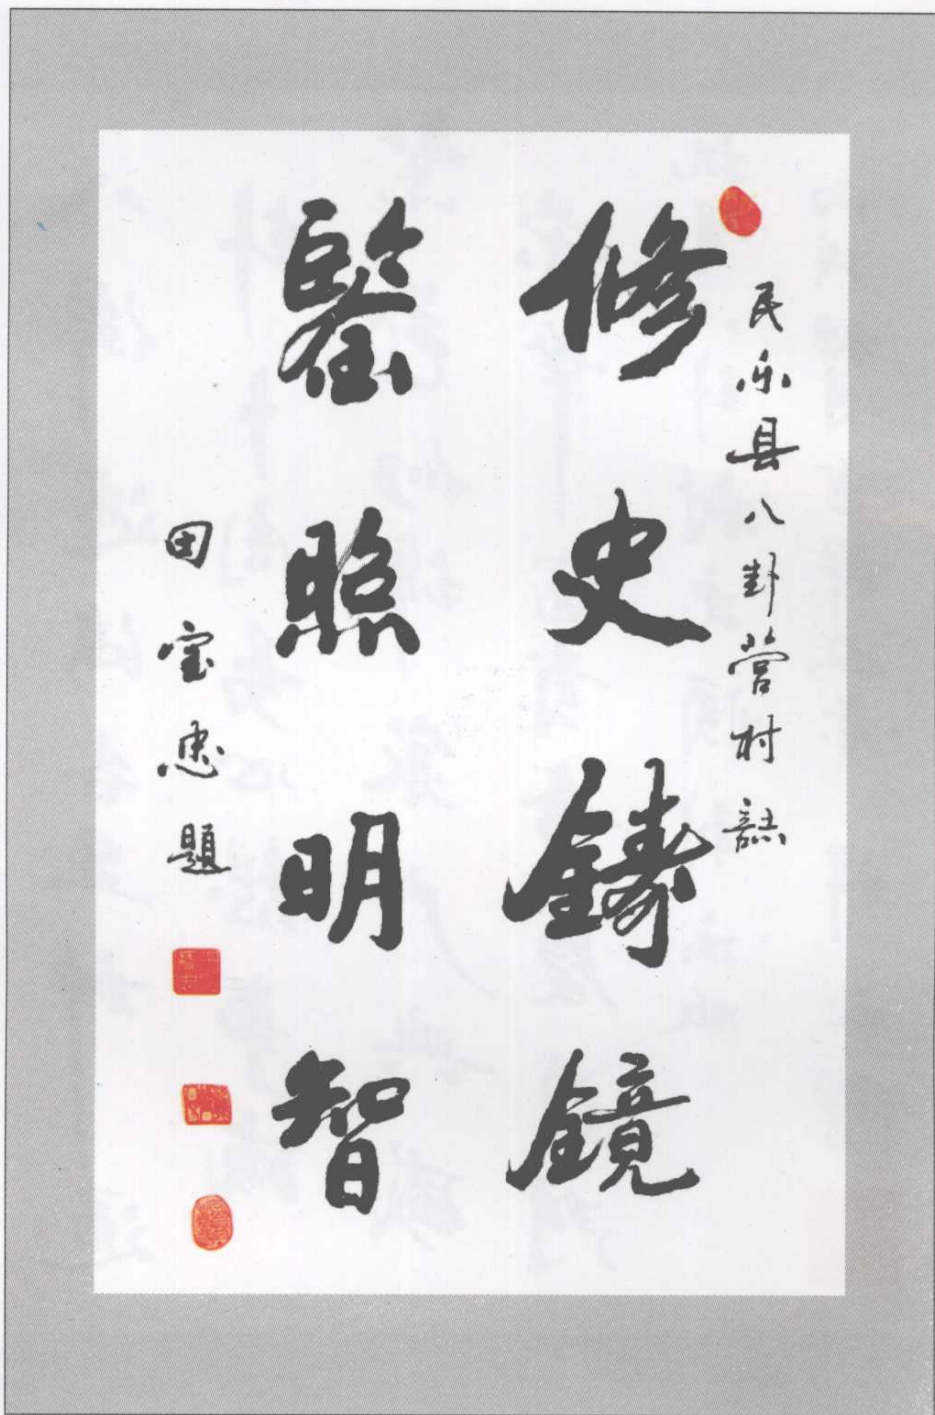 民乐县八卦营村誌
修史鑄鏡
鋻照明智
田宝忠題